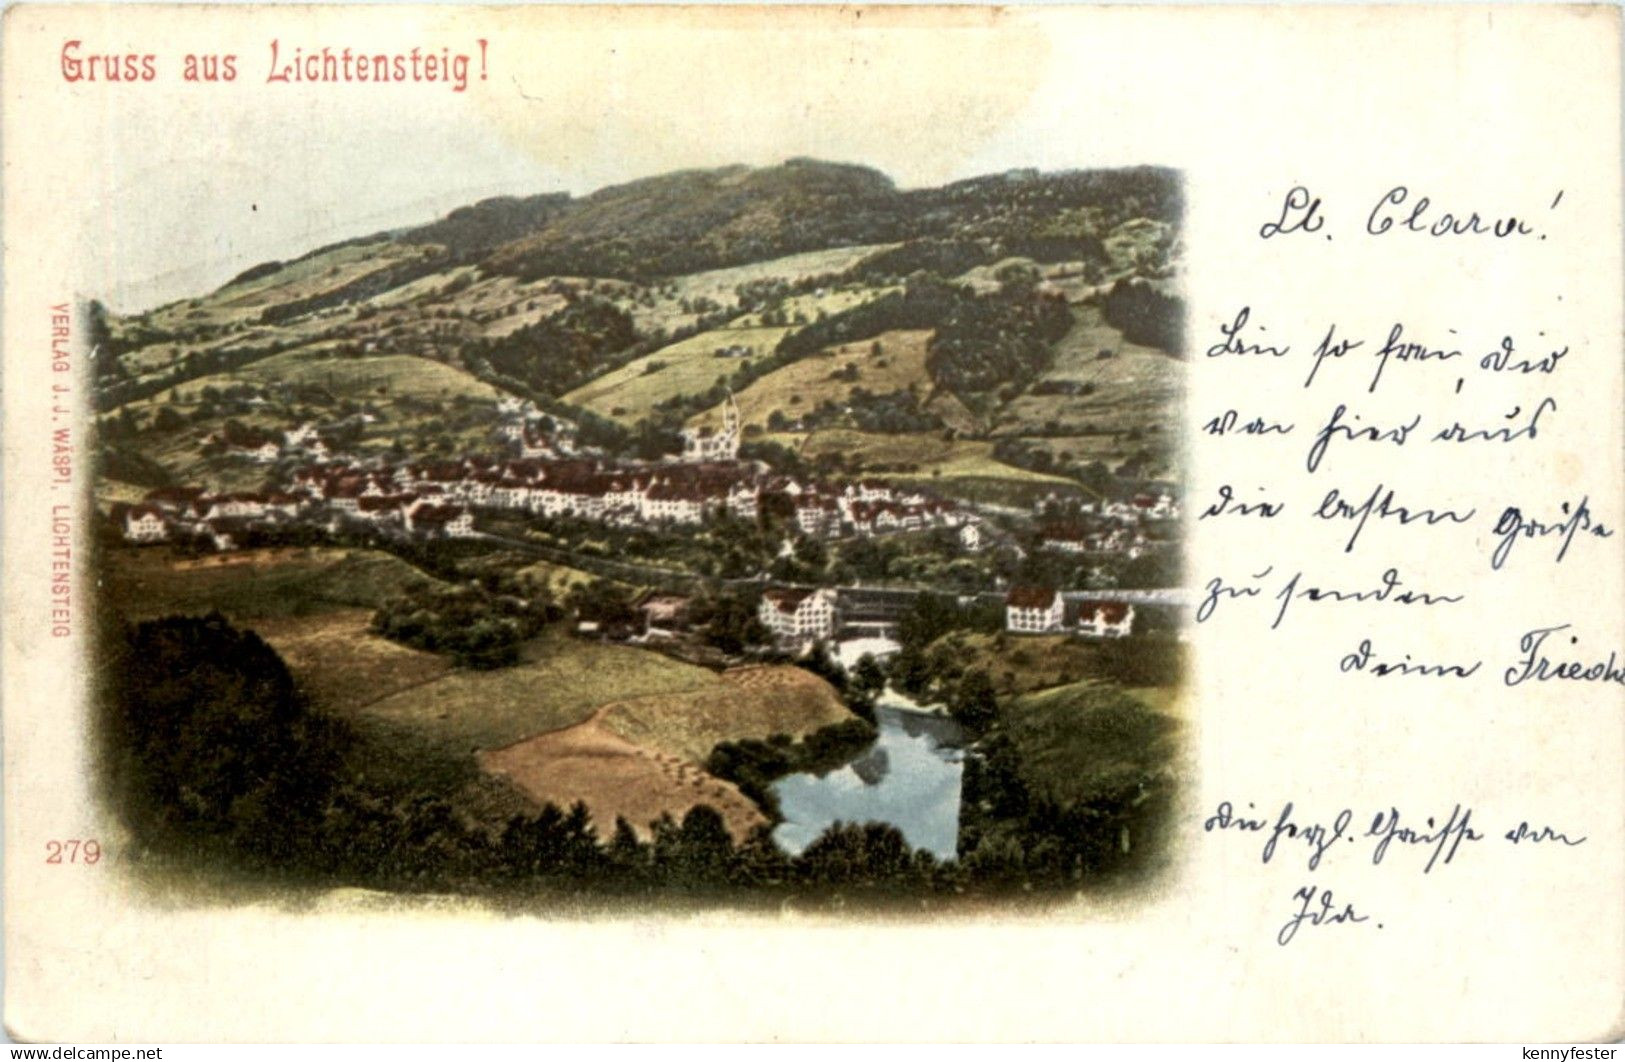 Gruss aus Lichtensteig!
VERLAG J. J. WÄSPI, LICHTENSTEIG
279
Lb. Clara!
Bin so frei, Dir
von hier aus
die besten Grüße
zu senden
Deine Friedh
Die herzl. Grüsse von
Ida.
www.delcampe.net
kennyfester